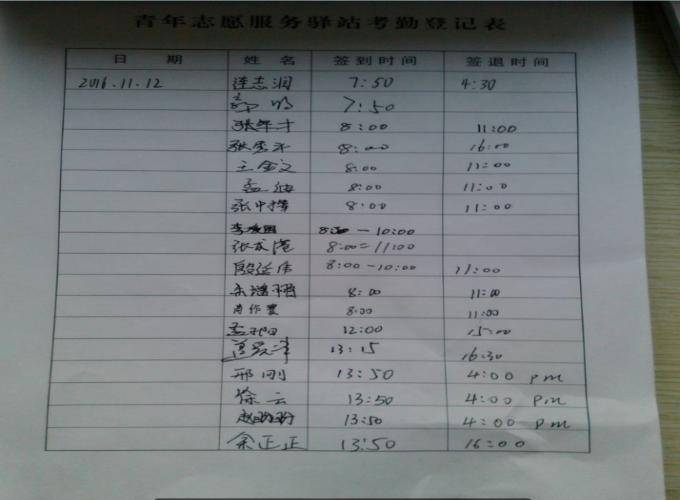 青年志愿服务驿站考勤登记表
日 期 姓 名 签到时间 签退时间
2016.11.12 连志润 7:50 4:30
7:50
张年才 8:00 11:00
张 8:00 16:00
王金文 8:00 11:00
孟 8:00 11:00
张中 8:00 11:00
李 8:00 — 10:00
张成 8:00-11:00
殷延伟 8:00-10:00 11:00
8:00 11:00
肖作 8:00 11:00
孟 12:00 15:00
13:15 16:30
邢刚 13:50 4:00 pm
徐云 13:50 4:00 pm
赵 13:50 4:00 pm
余正正 13:50 16:00